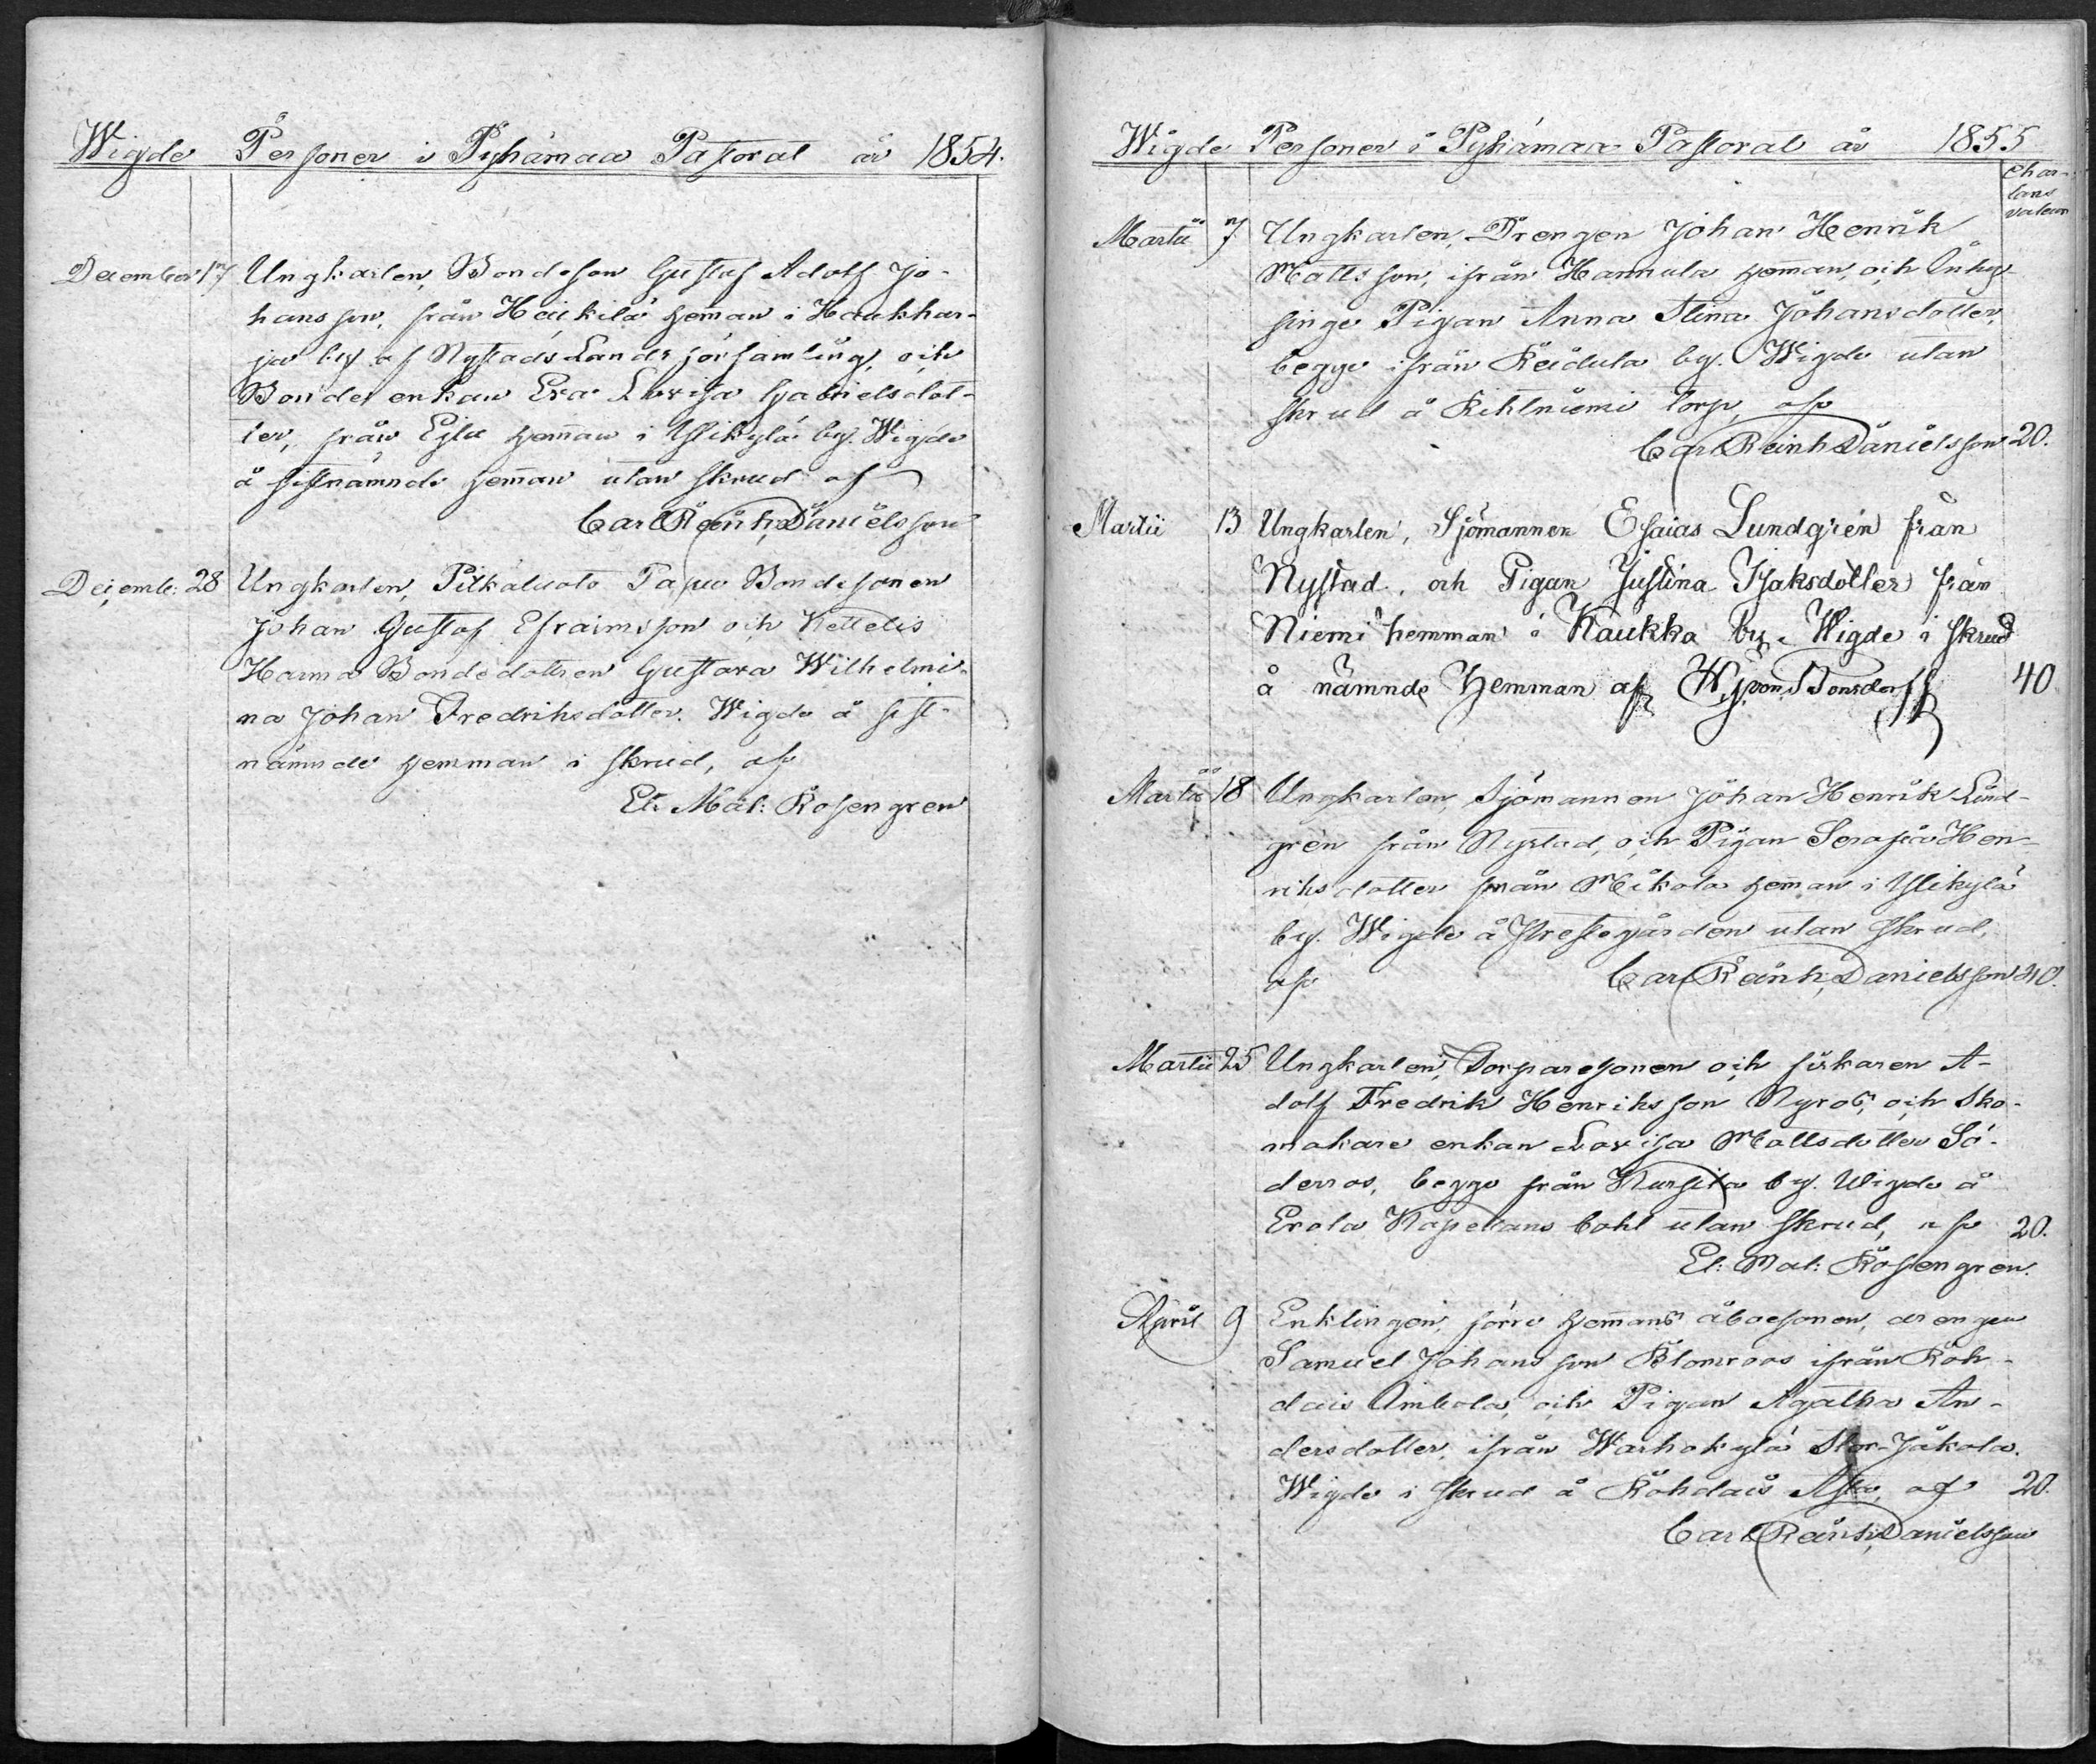 Wigde Personer i Pyhämaa Pastorat år 1854.
December 17 Ungkarlen, Bondeson Gustaf Adolf Jo-
hansson, från Heikilä heman i Haukhar-
ja by af Nystads Lands församling, och
Bonde enkan Eva Lovisa Gabrielsdot-
ter, från Ejlu hemman i Ylikylä by. Wigde
å sistnämnde heman utan skrud af
Carl Reinh. Danielsson
Decemb: 28 Ungkarlen, Pitkäluoto Papu Bondesonen
Johan Gustaf Efraimsson och Kettelis
Hanna Bondedottren Gustava Wilhelmi-
na Johan Fredriksdotter. Wigde å sist-
nämnde hemman i skrud, af
El: Mat: Rosengren
Wigde Personer i Pyhämaa Pastorat år 1855
Char-
tans
valeur
Martii 7 Ungkarlen, Drengen Johan Henrik
Mattsson, ifrån Hannula heman, och Inhys
hinge Pigan Anna Stina Johansdotter,
begge ifrån Reidula by. Wigde utan
skrud å Rihtniemi torp, af
Carl Reinh Danielsson 20.
Martii 13 Ungkarlen, Sjömannen Esaias Lundgrén från
Nystad, och Pigan Justina Isaksdotter från
Niemi hemman i Kaukka by. Wigde i skrud
å nämnde Hemman af W. von Bonsdorff 40
Martii 18 Ungkarlen, Sjömannen Johan Henrik Lind-
grén från Nystad, och Pigan Serafia Hen-
riksdotter från Mikola heman i Ylikylä
by. Wigde å Prestegården utan skrud,
af Carl Reinh, Danielsson 40.
Martii 25 Ungkarlen, Torparesonen och fiskaren A-
dolf Fredrik Henriksson Nyros, och Sko-
makare enkan Lovisa Mattsdotter Sö-
derros, begge från Kursila by. Wigde å
Erola Kapellans bohl utan skrud, af 20.
El: Mat: Rosengren.
April 9 Enklingen, förre hemans åboesonen, drengen
Samuel Johansson Blomroos ifrån Roh-
dais Anibola, och Pigan Agatha An-
dersdotter, ifrån Warhokylä Stor-Jäkola.
Wigde i skrud å Rohdais Asta, af 20.
Carl Reinh, Danielsson